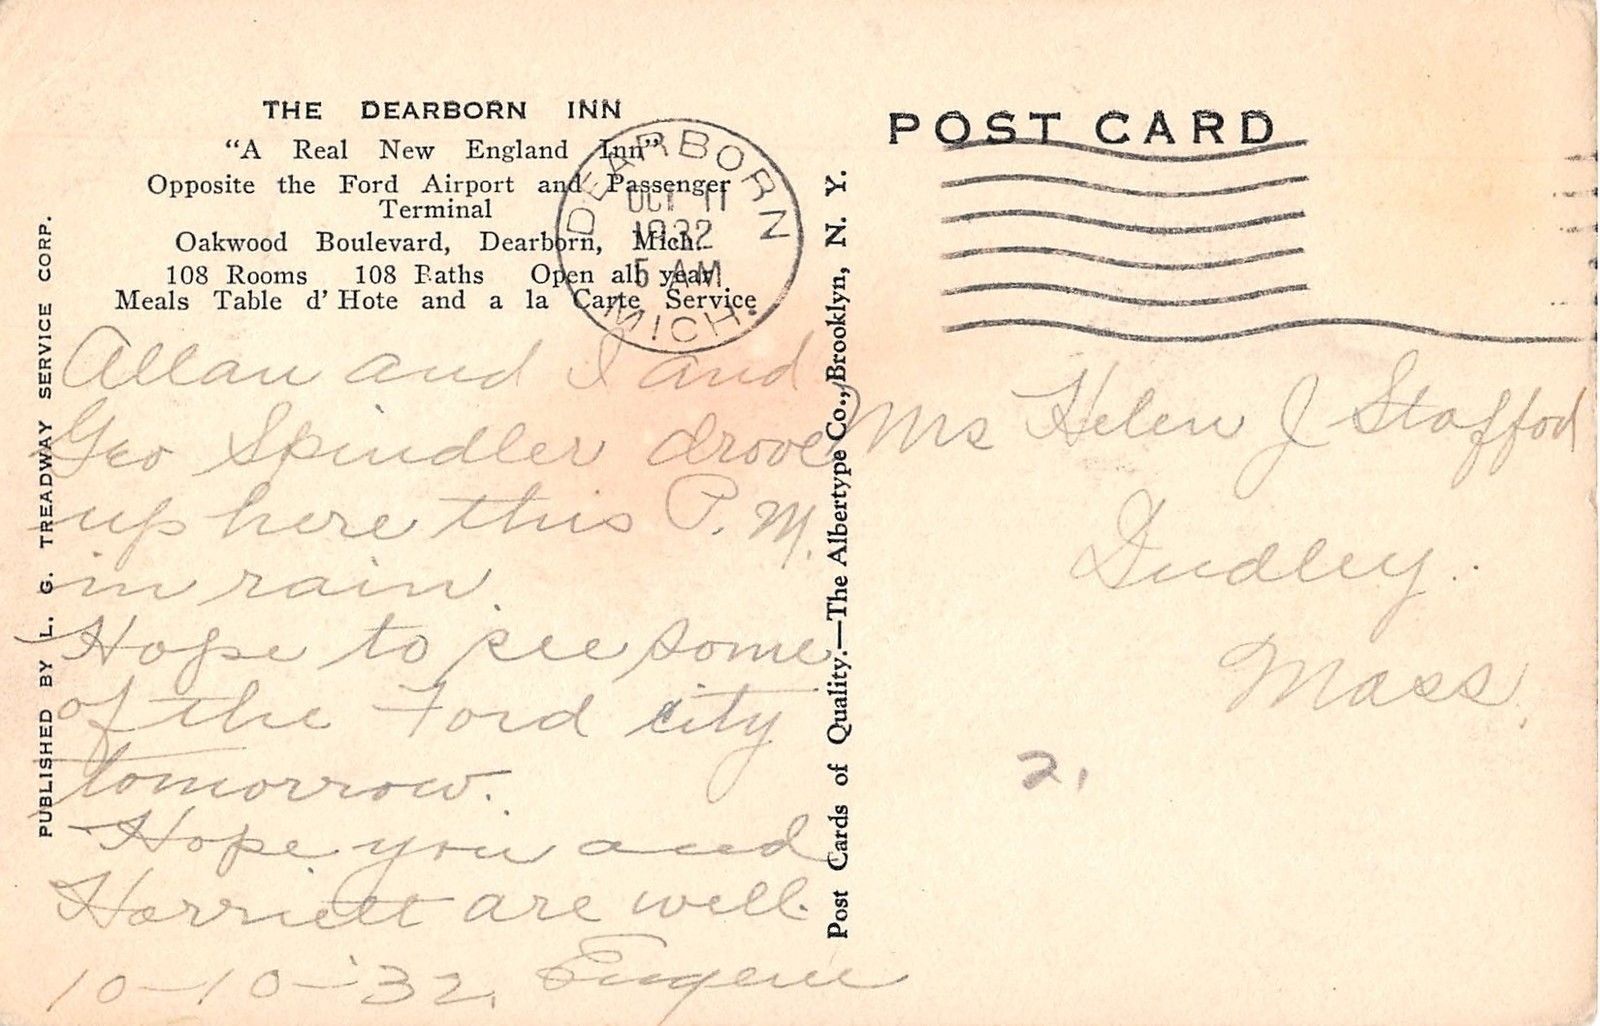 THE DEARBORN INN
"A Real New England Inn"
Opposite the Ford Airport and Passenger
Terminal
Oakwood Boulevard, Dearborn, Mich.
108 Rooms 108 Baths Open all year
Meals Table d'Hote and a la Carte Service
DEARBORN
OCT 11
1932
5 AM
MICH.
PUBLISHED BY L. G. TREADWAY SERVICE CORP.
Allan and I and
Geo Spindler drove
up here this P.M.
in rain.
Hope to see some
of the Ford city
tomorrow.
Hope you and
Harriett are well.
10-10-32. Eugene
Post Cards of Quality.—The Albertype Co., Brooklyn, N. Y.
POST CARD
Mrs Helen J Staffod
Dudley.
Mass.
2.